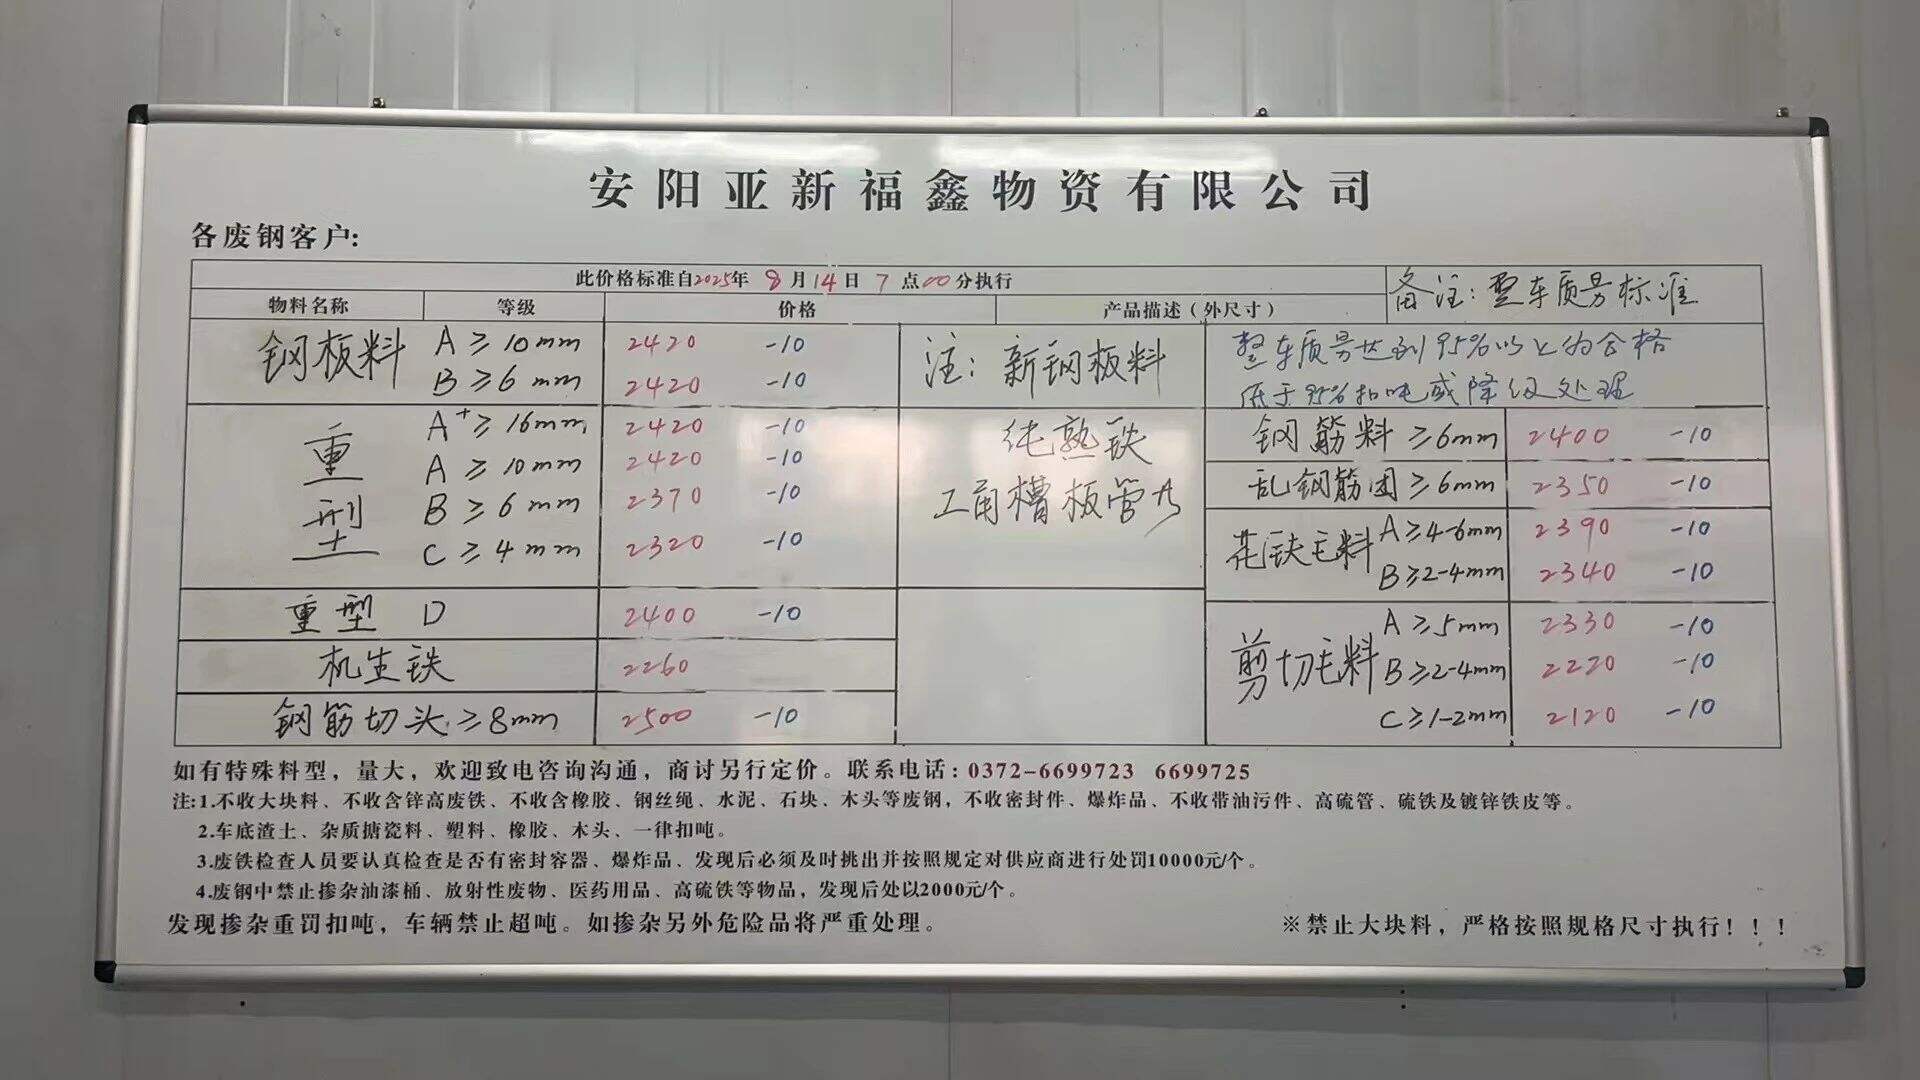 安阳亚新福鑫物资有限公司
各废钢客户:
此价格标准自2025年 8月14日 7点00分执行
备注:整车质量标准
物料名称 等级 价格 产品描述（外尺寸）
钢板料 A≥10mm 2420 -10
B≥6mm 2420 -10
注：新钢板料
整车质量达到95%以上为合格
低于95%扣吨或降级处理
重型 A+≥16mm 2420 -10
A≥10mm 2420 -10
B≥6mm 2370 -10
C≥4mm 2320 -10
纯熟铁
工角槽板管
钢筋料≥6mm 2400 -10
乱钢筋团≥6mm 2350 -10
花铁毛料 A≥4-6mm 2390 -10
B≥2-4mm 2340 -10
重型 D 2400 -10
机生铁 2260
钢筋切头≥8mm 2500 -10
剪切毛料 A≥5mm 2330 -10
B≥2-4mm 2220 -10
C≥1-2mm 2120 -10
如有特殊料型，量大，欢迎致电咨询沟通，商讨另行定价。联系电话：0372-6699723 6699725
注:1.不收大块料、不收含锌高废铁、不收含橡胶、钢丝绳、水泥、石块、木头等废钢，不收密封件、爆炸品、不收带油污件、高硫管、硫铁及镀锌铁皮等。
2.车底渣土、杂质搪瓷料、塑料、橡胶、木头、一律扣吨。
3.废铁检查人员要认真检查是否有密封容器、爆炸品、发现后必须及时挑出并按照规定对供应商进行处罚10000元/个。
4.废钢中禁止掺杂油漆桶、放射性废物、医药用品、高硫铁等物品，发现后处以2000元/个。
发现掺杂重罚扣吨，车辆禁止超吨。如掺杂另外危险品将严重处理。
※禁止大块料，严格按照规格尺寸执行！！！